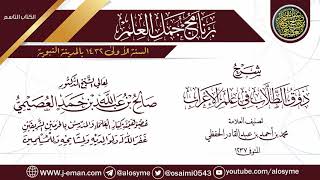 الكتاب التاسع
برنامج جمل العلم
السنة الأولى ١٤٣٩ بالمدينة النبوية
شرح
ذوق الطلاب في علم الإعراب
تصنيف العلامة
محمد بن أحمد بن عبد القادر الحفظي
المتوفى ١٢٣٧
لمعالي الشيخ الدكتور
صالح بن عبد الله بن حمد العصيمي
عضو هيئة كبار العلماء والمدرس بالحرمين الشريفين
غفر الله له ولوالديه ولمشايخه وللمسلمين
www.j-eman.com
@osaimi0543
youtube.com/alosyme
@alosyme